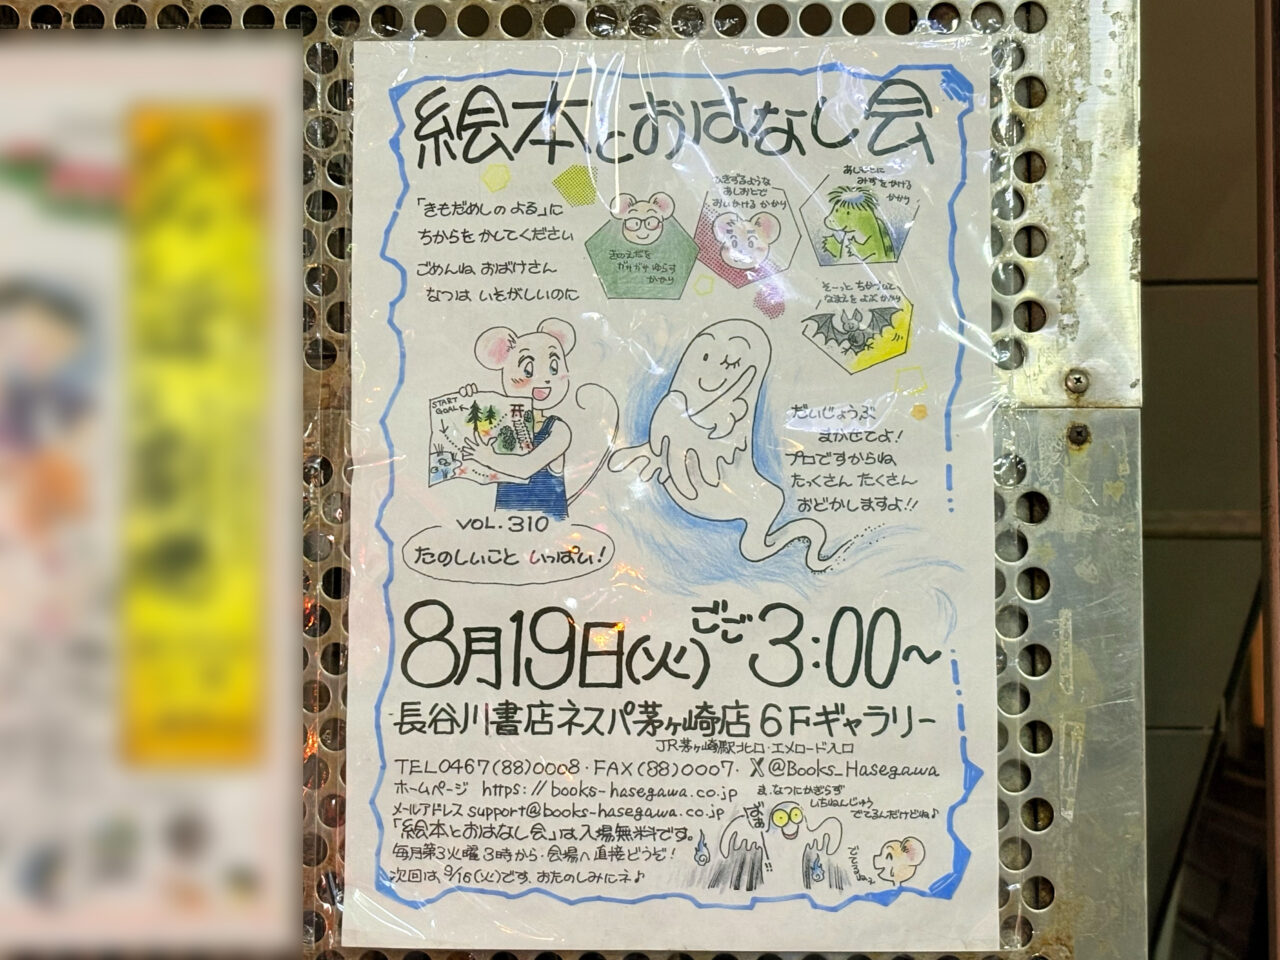 絵本とおはなし会
「きもだめしの よる」に
ちからを かしてください
ごめんね、おばけさん
なつは いそがしいのに
きのえだを
ガサガサ ゆらす
かかり
ひきずるような
あしおとで
おいかける かかり
あしもとに
みずをかける
かかり
そーっと ちかづいて
なまえを よぶ かかり
START
GOAL
VOL.310
たのしいこと いっぱい!
だいじょうぶ
まかせてよ!
プロですからね、
たっくさん たくさん
おどかしますよ!!
8月19日(火)ごご3:00〜
長谷川書店ネスパ茅ヶ崎店 6Fギャラリー
JR茅ヶ崎駅北口・エメロード入口
TEL0467(88)0008・FAX(88)0007・X@Books_Hasegawa
ホームページ https://books-hasegawa.co.jp
メールアドレス support@books-hasegawa.co.jp
「絵本とおはなし会」は入場無料です。
毎月第3火曜 3時から・会場へ直接どうぞ!
次回は、9/16(火)です、おたのしみにネ♪
ま、なつにかぎらず
いちねんじゅう
でてるんだけどね♪